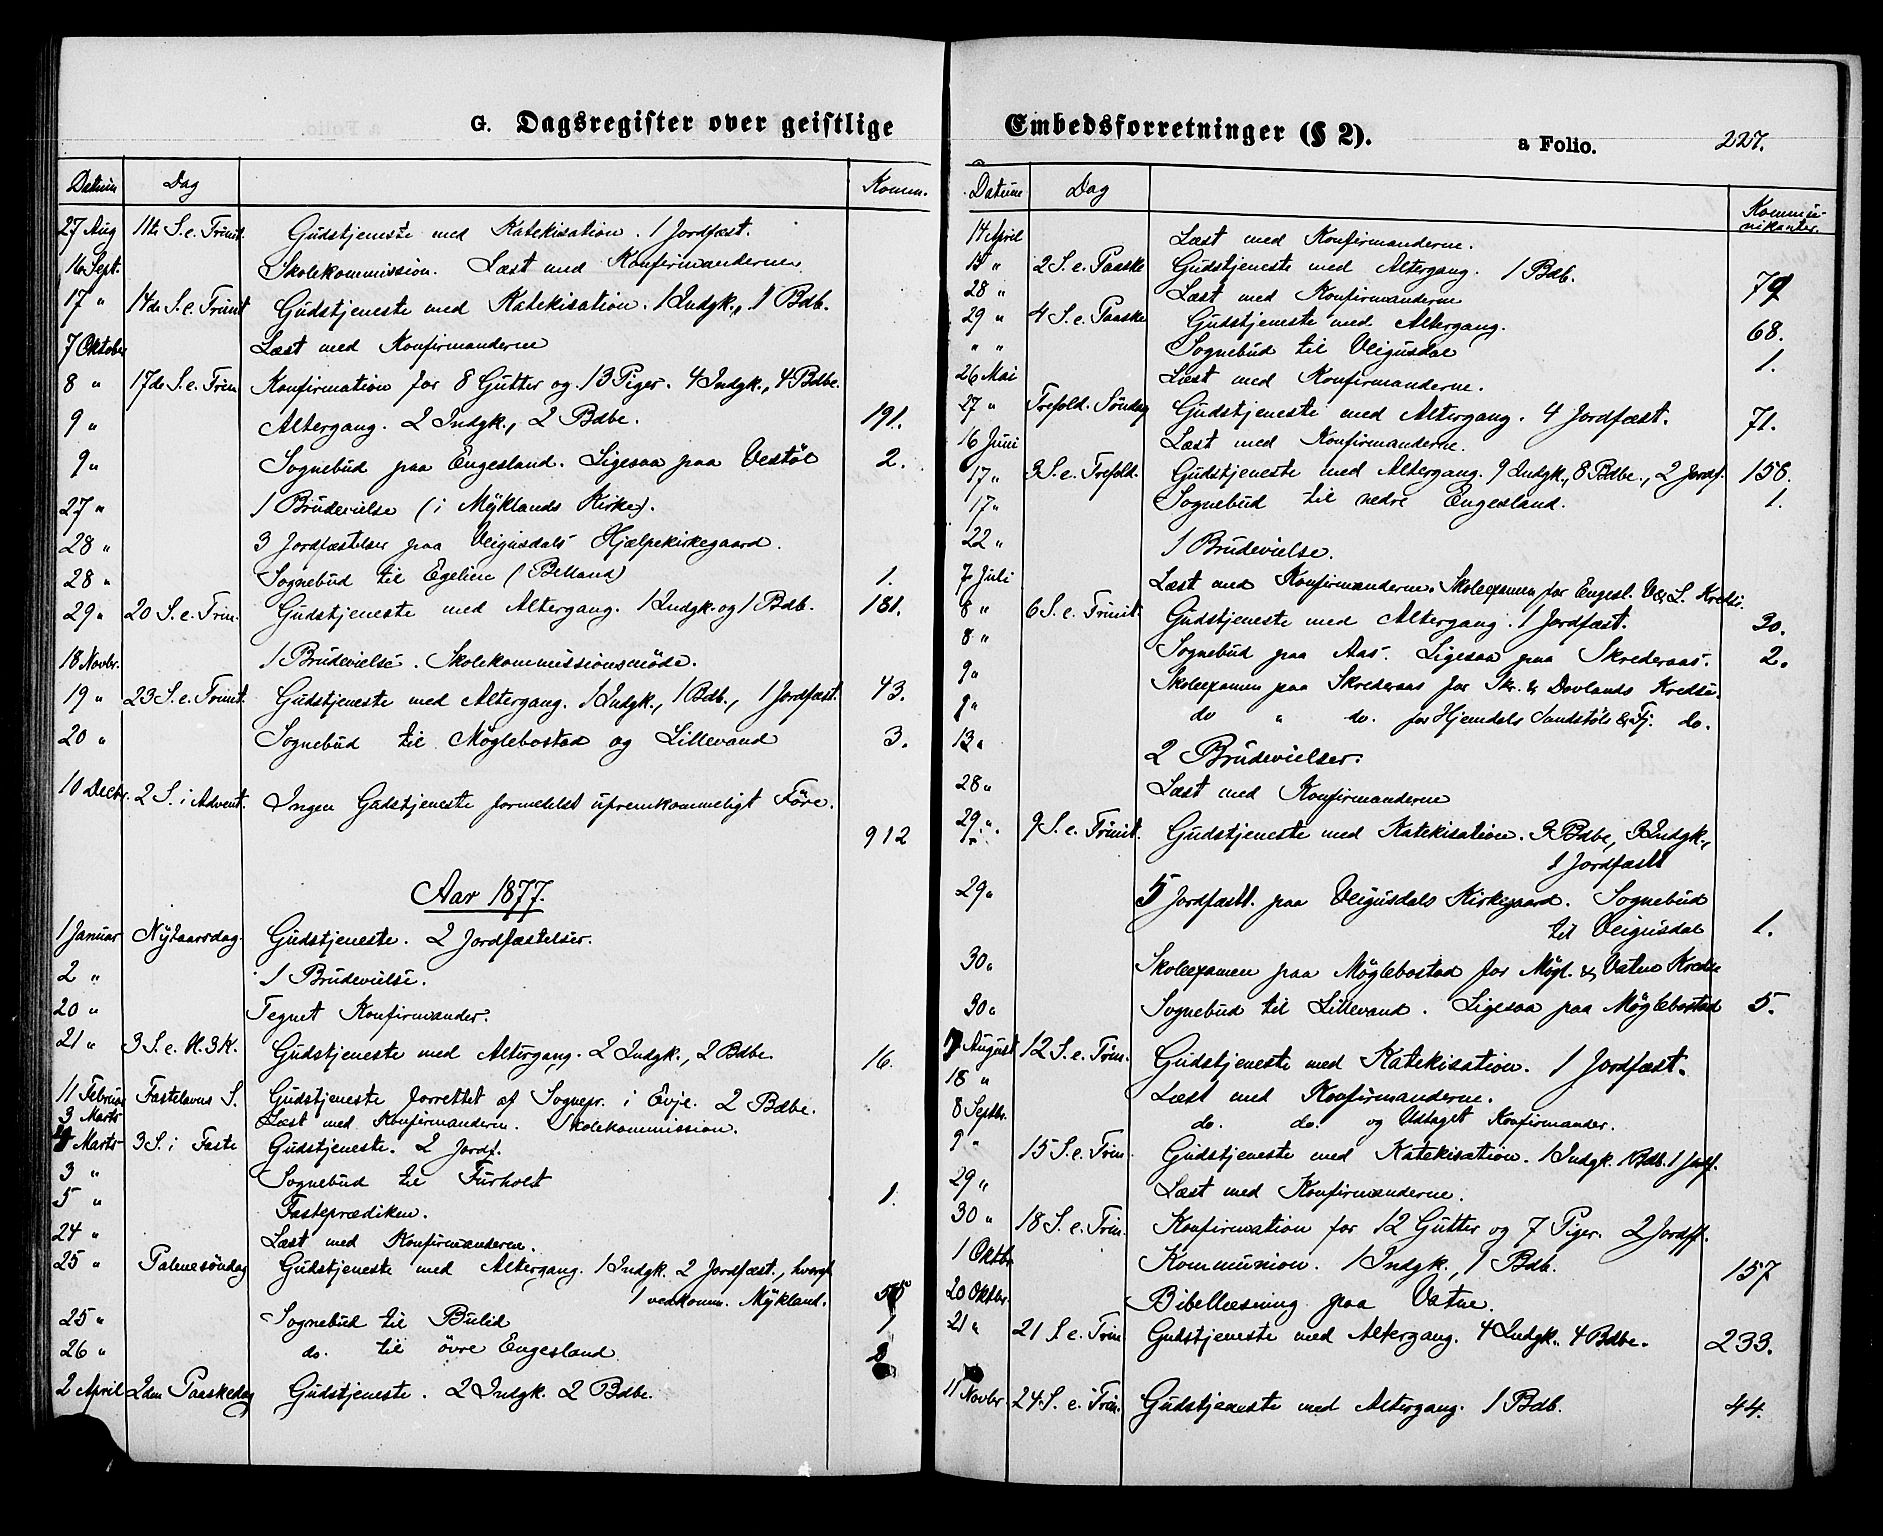 G. Dagsregister over geistlige
Datum Dag Komm.
27 Aug 11te S. e. Trinit. Gudstjeneste med Katekisation. 1 Jordfæst.
16 Sept. Skolekommission. Læst med Konfirmanderne
17 " 14de S. e. Trinit Gudstjeneste med Katekisation. 1 Indgk., 1 Bdb.
7 Oktober Læst med Konfirmanderne
8 " 17de S. e. Trin. Konfirmation for 8 Gutter og 13 Piger. 4 Indgk., 4 Bdbe.
9 " Altergang. 2 Indgk., 2 Bdbe. 191.
9 " Sognebud paa Engesland. Ligesaa paa Vestöl 2.
27 " 1 Brudevielse (i Myklands Kirke).
28 " 3 Jordfæstelser paa Veigusdals Hjælpekirkegaard.
28 " Sognebud til Egelien (Belland) 1.
29 " 20 S. e. Trin. Gudstjeneste med Altergang. 1 Indgk. og 1 Bdb. 181.
18 Novbr. 1 Brudevielse. Skolekommissionsmöde.
19 " 23 S. e. Trinit. Gudstjeneste med Altergang. 1 Indgk., 1 Bdb., 1 Jordfæst. 43.
20 " Sognebud til Möglebostad og Lillevand 3.
10 Decbr. 2 S. i Advent. Ingen Gudstjeneste formedelst ufremkommeligt Före.
912
Aar 1877.
1 Januar Nytaarsdag Gudstjeneste. 2 Jordfæstelser.
2 " 1 Brudevielse.
20 " Tegnet Konfirmander.
21 " 3 S. e. H. 3 K. Gudstjeneste med Altergang. 2 Indgk., 2 Bdbe. 16.
11 Februar Fastelavns S. Gudstjeneste forrettet af Sognepr. i Evje. 2 Bdbe.
3 Marts Læst med Konfirmanderne. Skolekommission.
4 Marts 3 S. i Faste Gudstjeneste. 2 Jordf.
3 " Sognebud til Furholt 1.
5 " Fasteprædiken.
24 " Læst med Konfirmanderne.
25 " Palmesöndag Gudstjeneste med Altergang. 1 Indgk. 2 Jordfæst., hvoraf
1 vedkomm. Mykland.
25 " Sognebud til Bulid
26 " do. til övre Engesland
2 April 2den Paaskedag Gudstjeneste. 2 Indgk. 2 Bdbe.
Embedsforretninger (§ 2). a Folio. 227.
Datum Dag Kommunikanter.
14 April Læst med Konfirmanderne.
15 " 2 S. e. Paaske Gudstjeneste med Altergang. 1 Bdb. 79
28 " Læst med Konfirmanderne
29 " 4 S. e. Paaske Gudstjeneste med Altergang. 68.
" " Sognebud til Veigusdal 1.
26 Mai Læst med Konfirmanderne.
27 " Trefold. Söndag Gudstjeneste med Altergang. 4 Jordfæst. 71.
16 Juni Læst med Konfirmanderne.
17 " 3 S. e. Trefold. Gudstjeneste med Altergang. 9 Indgk., 8 Bdbe., 2 Jordf. 158.
17 " Sognebud til nedre Engesland. 1.
22 " 1 Brudevielse.
7 Juli Læst med Konfirmanderne. Skoleexamen for Engesl. V. & L. Kredse.
8 " 6 S. e. Trinit. Gudstjeneste med Altergang. 1 Jordfæst. 30.
8 " Sognebud paa Aas. Ligesaa paa Skrederaas. 2.
9 " Skoleexamen paa Skrederaas for Skr. & Dovlands Kredse.
9 " do " do. for Hjemdals Sandstöls & Fj. do.
13 " 2 Brudevielser.
28 " Læst med Konfirmanderne
29 " 9 S. e. Trinit. Gudstjeneste med Katekisation. 3 Bdbe, 3 Indgk.,
1 Jordfæst
29 " 5 Jordfæst. paa Veigusdals Kirkegaard. Sognebud
til Veigusdal 1.
30 " Skoleexamen paa Möglebostad for Mögl. & Vatne Kredse
30 " Sognebud til Lillevand. Ligesaa paa Möglebostad 5.
August 12 S. e. Trin. Gudstjeneste med Katekisation. 1 Jordfæst.
18 " Læst med Konfirmanderne.
8 Septbr. do. do. og Udtaget Konfirmander.
9 " 15 S. e. Trin. Gudstjeneste med Katekisation. 1 Indgk. 1 Bdb. 1 Jordf.
29 " Læst med Konfirmanderne.
30 " 18 S. e. Trin. Konfirmation for 12 Gutter og 7 Piger. 2 Jordff.
1 Oktbr Kommunion. 1 Indgk., 1 Bdb. 157
20 Oktbr. Bibellæsning paa Vatne.
21 " 21 S. e. Trin Gudstjeneste med Altergang. 4 Indgk., 4 Bdbe. 233.
11 Novbr. 24. S. e. Trin. Gudstjeneste med Altergang. 1 Bdb. 44.